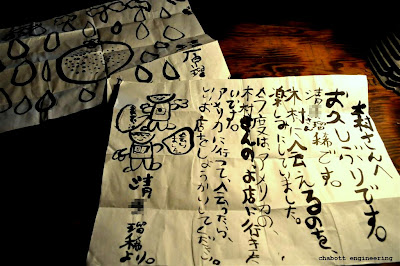 さんへ
お久しぶりです。
清 瑠稀です。
木村さんに会えるのを
楽しみにしていました。
今度は、アメリカの、
木村さんのお店に行きた
いです。
アメリカに行って会ったら、
お店をしょうかいしてください。
清 瑠稀より。
chabott engineering